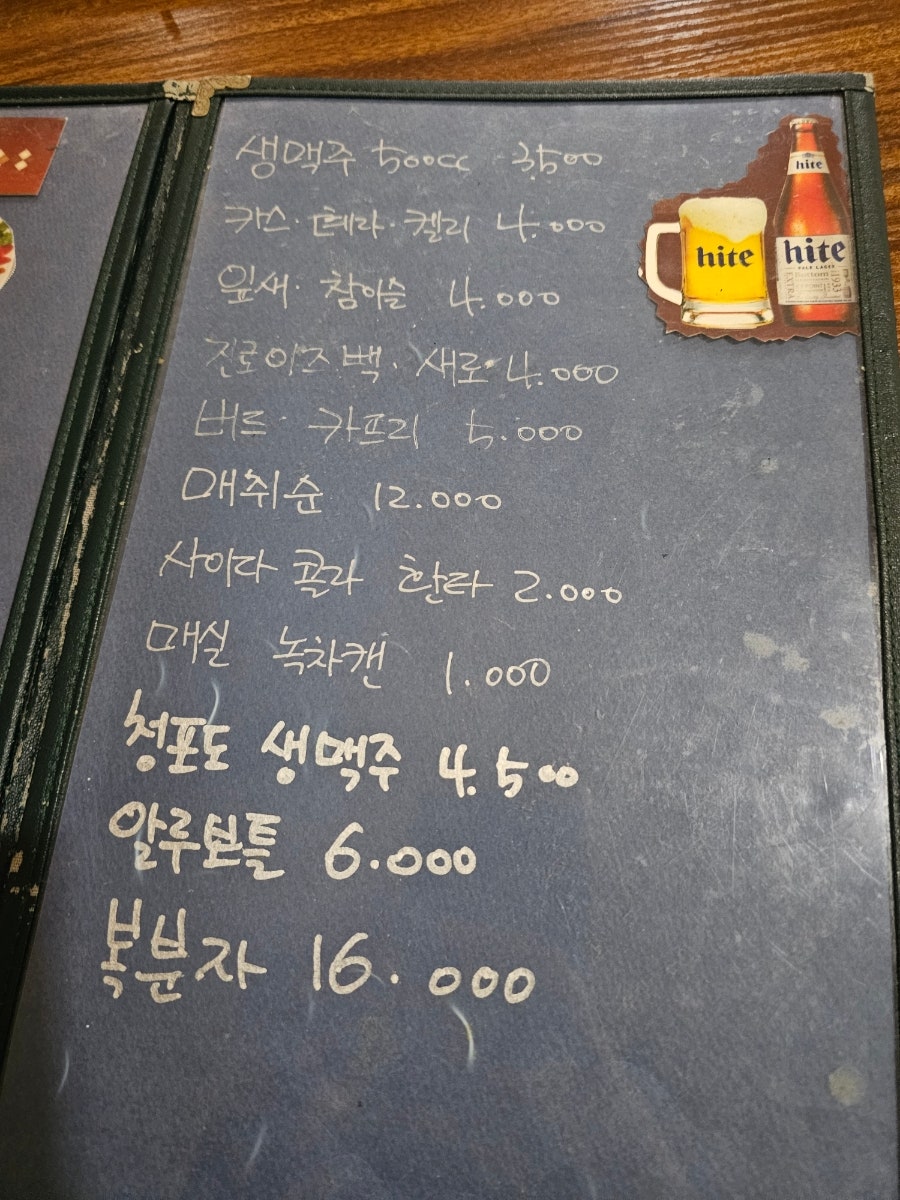 생맥주 500cc 3,500
카스·테라·켈리 4.000
잎새·참이슬 4.000
진로이즈백·새로 4.000
버드·카프리 5.000
매취순 12.000
사이다 콜라 환타 2.000
매실 녹차캔 1.000
청포도 생맥주 4.500
알루보틀 6.000
복분자 16.000
hite
hite
hite
PALE LAGER
EXTRA
1933